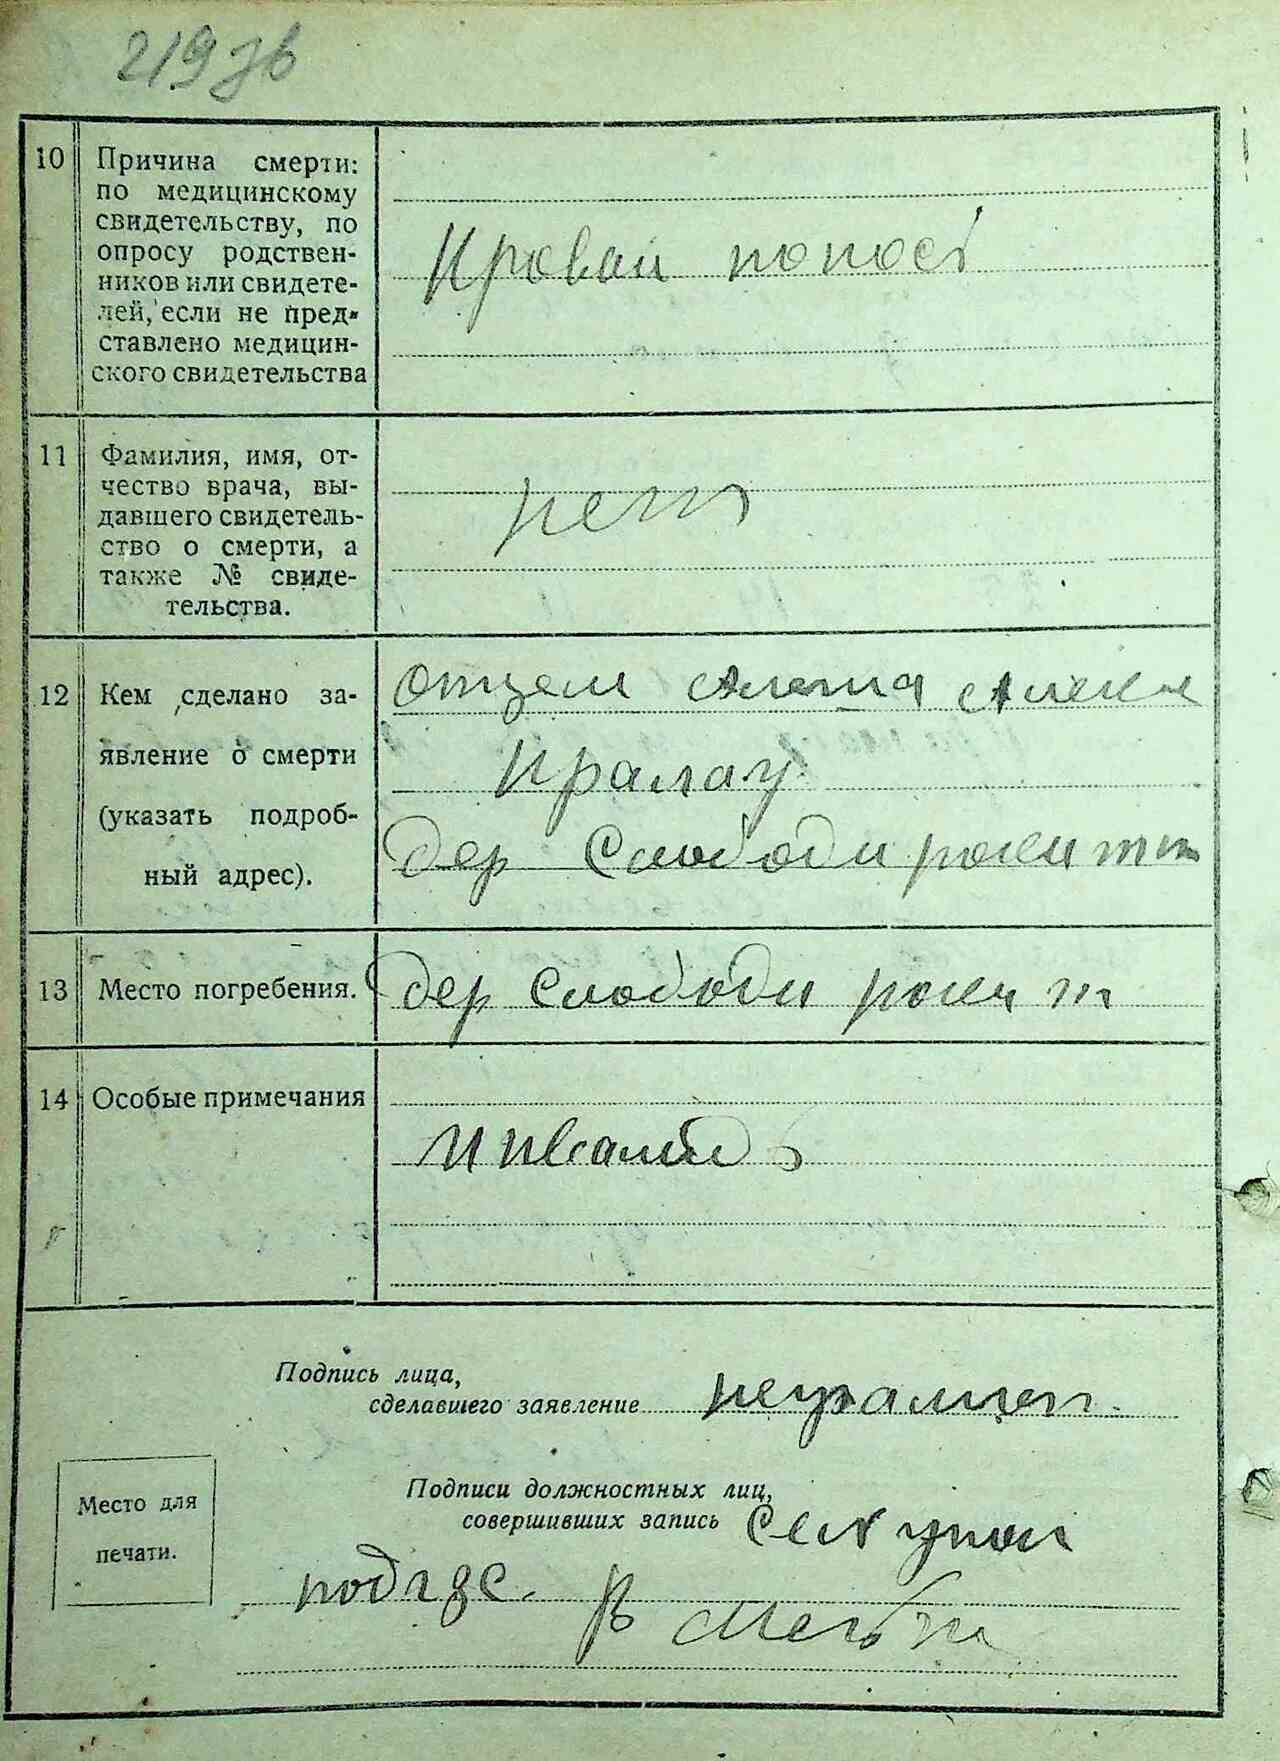 219 зв
10 Причина смерти:
по медицинскому
свидетельству, по
опросу родствен-
ников или свидете-
лей, если не пред-
ставлено медицин-
ского свидетельства
Кровай понос
11 Фамилия, имя, от-
чество врача, вы-
давшего свидетель-
ство о смерти, а
также № свиде-
тельства.
нет
12 Кем сделано за-
явление о смерти
(указать подроб-
ный адрес).
Отцем
дер Слободи
13 Место погребения.
дер Слободи
14 Особые примечания
Инвалид
Подпись лица,
сделавшего заявление
Подписи должностных лиц,
совершивших запись
Место для
печати.